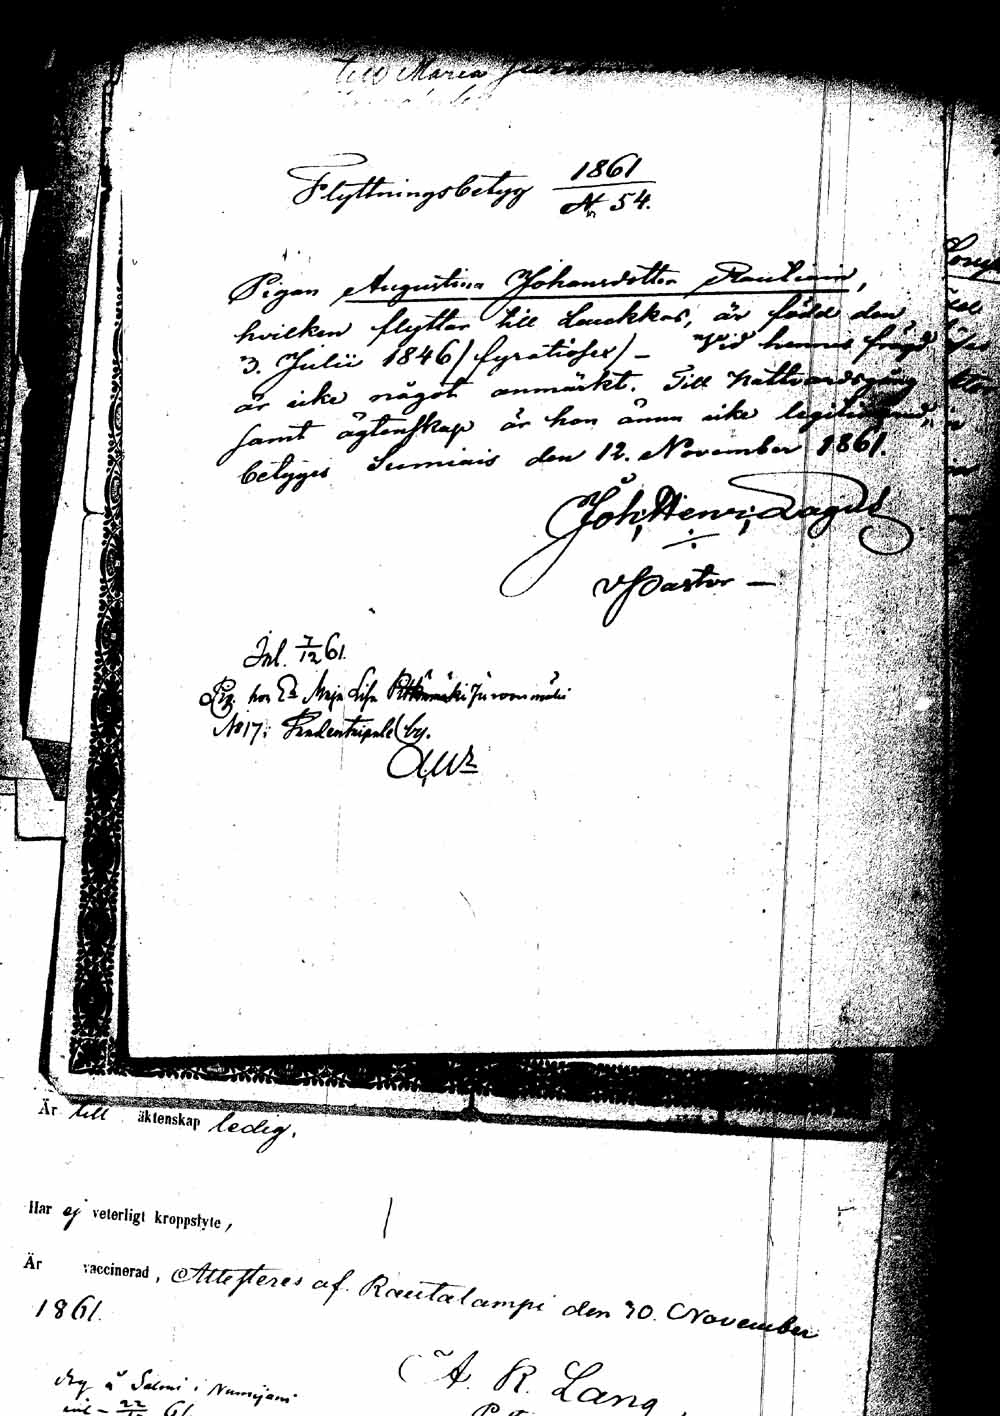 till Maria
Flyttningsbetyg 1861
N 54.
Pigan Augustina Johansdotter Rautiain,
hvilken flyttar till Laukkas, är född den
3. Julii 1846 (fyratiosex) – Vid hennes frägd
är icke något anmärkt. Till Nattvardsgång
samt ägtenskap är hon ännu icke legitimerad,
betyges Sumiais den 12. November 1861.
Joh. Henr. Lagus
v Pastor –
Inl. 7/12 61.
Pig. hos Maja Lisa
No 17: by.
Är till äktenskap ledig.
Har ej veterligt kroppslyte,
Är vaccinerad, Attesteres af. Rautalampi den 30. November
1861.
A. R. Lang
å Salmi i
inl – 22/12 61